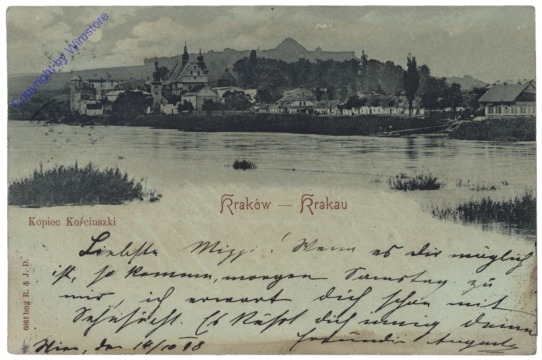 Copyright by Wimstore
Kraków — Krakau
Kopiec Kościuszki
Liebste Mizzi! Wenn es dir möglich
ist, so komme, morgen Samstag zu
mir, ich erwart dich schon mit
Sehnsucht. Es Küßt dich innig deine
Freundin Auguste
Wien, den 14/10 98
R. & J. D.